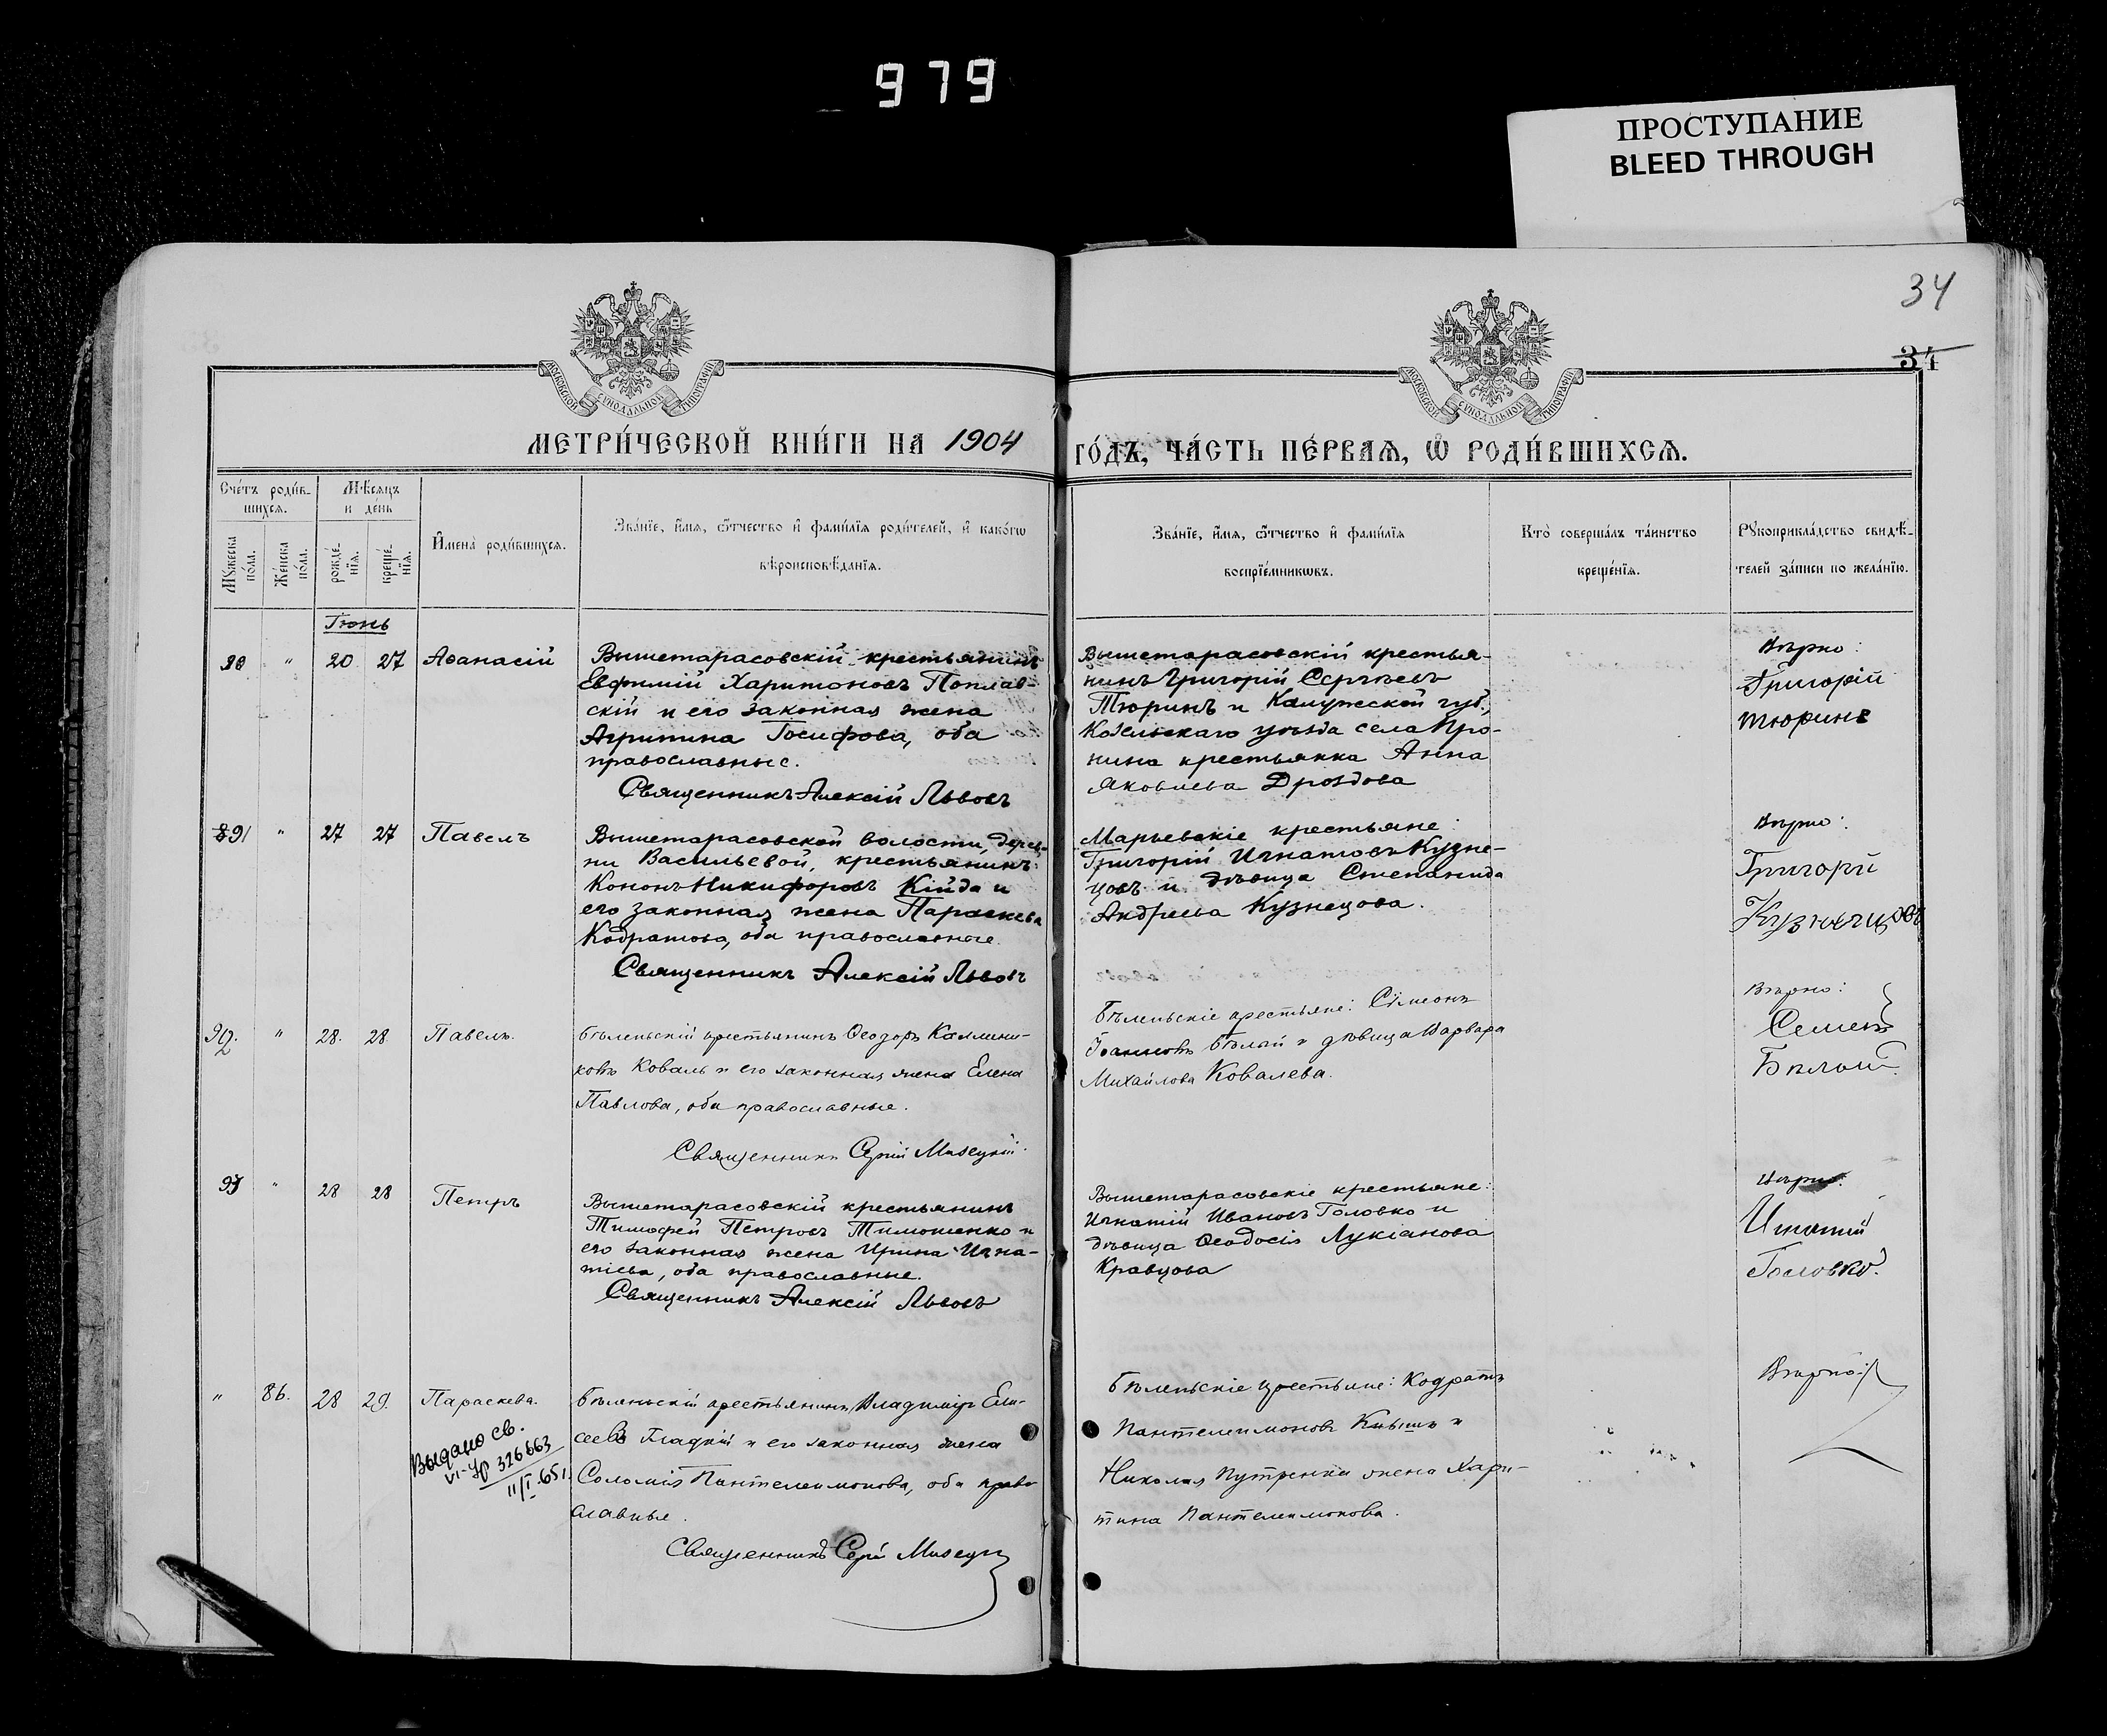 979
ПРОСТУПАНИЕ
BLEED THROUGH
34
34
МОСКОВСКОЙ СѴНОДАЛЬНОЙ ТИПОГРАФІИ
МОСКОВСКОЙ СѴНОДАЛЬНОЙ ТИПОГРАФІИ
МЕТРИ́ЧЕСКОЙ КНИ́ГИ НА 1904 ГО́ДЪ, ЧА́СТЬ ПЕ́РВАѦ, Ѡ҆ РОДИ́ВШИХСѦ.
Сче́тъ роди́в-
шихсѧ.
Мѣ́сѧцъ
и день
Мꙋ́жеска
по́ла.
Же́нска
по́ла.
рожде́-
нїѧ.
креще́-
нїѧ.
И҆мена̀ роди́вшихсѧ.
Зва́нїе, и҆́мѧ, ѻ҆́тчество и҆ фами́лїѧ роди́телей, и҆ како́гѡ
вѣроисповѣ́данїѧ.
Зва́нїе, и҆́мѧ, ѻ҆́тчество и҆ фами́лїѧ
воспрїе́мникѡвъ.
Кто̀ соверша́лъ та́инство
креще́нїѧ.
Рꙋкоприкла́дство свидѣ́-
телей за́писи по жела́нїю.
Іюнь
90 " 20 27 Аѳанасій
Вышетарасовскій крестьянинъ
Евфимій Харитоновъ Поплав-
скій и его законная жена
Агрипина Іосифова, оба
православные.
Священникъ Алексій Львовъ
Вышетарасовскій крестья-
нинъ Григорій Сергѣевъ
Тюринъ и Калужской губ.,
Козельскаго уѣзда села Про-
нина крестьянка Анна
Яковлева Дроздова
Вѣрно:
Григорій
Тюринъ
91 " 27 27 Павелъ
Вышетарасовской волости, дерев-
ни Васильевой, крестьянинъ
Кононъ Никифоровъ Кійда и
его законная жена Параскева
Кодратова, оба православные
Священникъ Алексій Львовъ
Марьевскіе крестьяне:
Григорій Игнатовъ Кузне-
цовъ и дѣвица Степанида
Андреева Кузнецова.
Вѣрно:
Григорій
Кузнецовъ
92. " 28. 28. Павелъ.
Бѣленьскій крестьянинъ Ѳеодоръ Каллини-
ковъ Коваль и его законная жена Елена
Павлова, оба православные.
Священникъ Сергій Мизецкій.
Бѣленьскіе крестьяне: Сѵмеонъ
Іоанновъ Бѣлый и дѣвица Варвара
Михайлова Ковалева.
Вѣрно:
Семенъ
Бѣлый
93 " 28 28 Петръ
Вышетарасовскій крестьянинъ
Тимофей Петровъ Тимошенко и
его законная жена Ирина Игна-
тіева, оба православные.
Священникъ Алексій Львовъ
Вышетарасовскіе крестьяне:
Игнатій Ивановъ Головко и
дѣвица Ѳеодосія Лукіанова
Кравцова
Вѣрно.
Игнатій
Головко.
" 86. 28 29. Параскева.
Выдано св.
VI-ЯР 326663
11/I.65 г.
Бѣленьскій крестьянинъ Владиміръ Ели-
сеевъ Гладкій и его законная жена
Соломія Пантелеимонова, оба право
славные.
Священникъ Сергій Мизецкій
Бѣленьскіе крестьяне: Кодратъ
Пантелеимоновъ
Николая Путренка жена Хари-
тина Пантелеимонова.
Вѣрно: